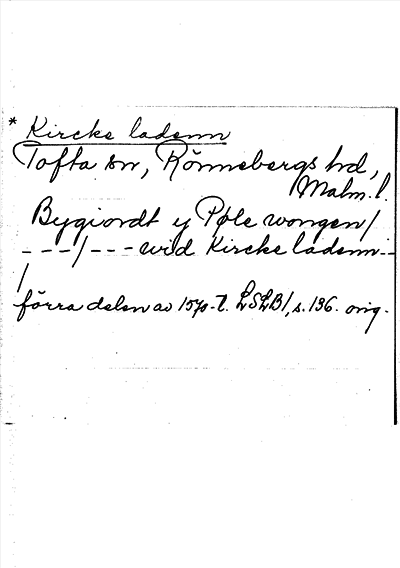 * Kircke ladenn
Tofta sn, Rönnebergs hd,
Malm. l.
Bygiordt y Pøle wongen/
---/--- wid Kircke ladenn--
/
förra delen av 1570-t. LSLB1, s. 136. orig.